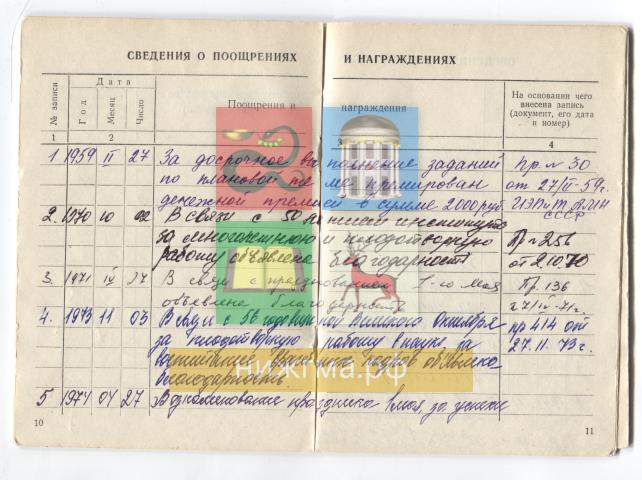 СВЕДЕНИЯ О ПООЩРЕНИЯХ И НАГРАЖДЕНИЯХ
№ записи
Дата
Год
Месяц
Число
Поощрения и награждения
На основании чего внесена запись (документ, его дата и номер)
1 2 3 4
1 1959 II 27 За досрочное выполнение заданий Пр. № 30
по плановой теме премирован от 27/II-59г.
денежной премией в сумме 2000 руб.
СССР
2. 1970 10 02 В связи с 50 летием института
за многолетнюю и плодотворную Пр № 256
работу объявлена благодарность от 2.10 70
3. 1971 IV 27 В связи с празднованием 1-го мая Пр. 136
объявлена благодарность 27/IV-71г.
4. 1973 11 03 В связи с 56 годовщиной Великого Октября пр 414 от
за плодотворную работу в науке, за 27.11.73 г.
воспитание кадров объявлена
благодарность.
5 1974 04 27 В ознаменование праздника 1 мая, за успехи
нижгма.рф
10 11